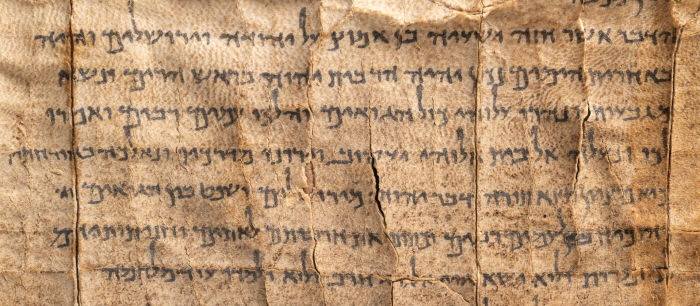 הדבר אשר חזה ישעיה בן אמוץ על יהודה וירושלים והיה
באחרית הימים נכון יהיה הר בית יהוה בראש הרים ונשא
מגבעות ונהרו עלוהי כול הגואים והלכו עמים רבים ואמרו
לכו ונעלה אל בית אלוהי יעקוב וירונו מדרכיו ונלכה באורחותיו
כיא מציון תצא תורה ודבר יהוה מירושלים ושפט בין הגואים
והוכיח בין לעמים רבים וכתתו את חרבותם לאתים וחניתותיהם
למזמרות ולוא ישא גוי אל גוי חרב ולוא ילמדו עוד מלחמה